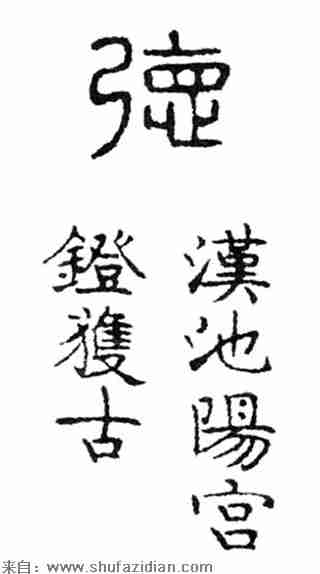 德
漢池陽宮
鐙獲古
来自：www.shufazidian.com